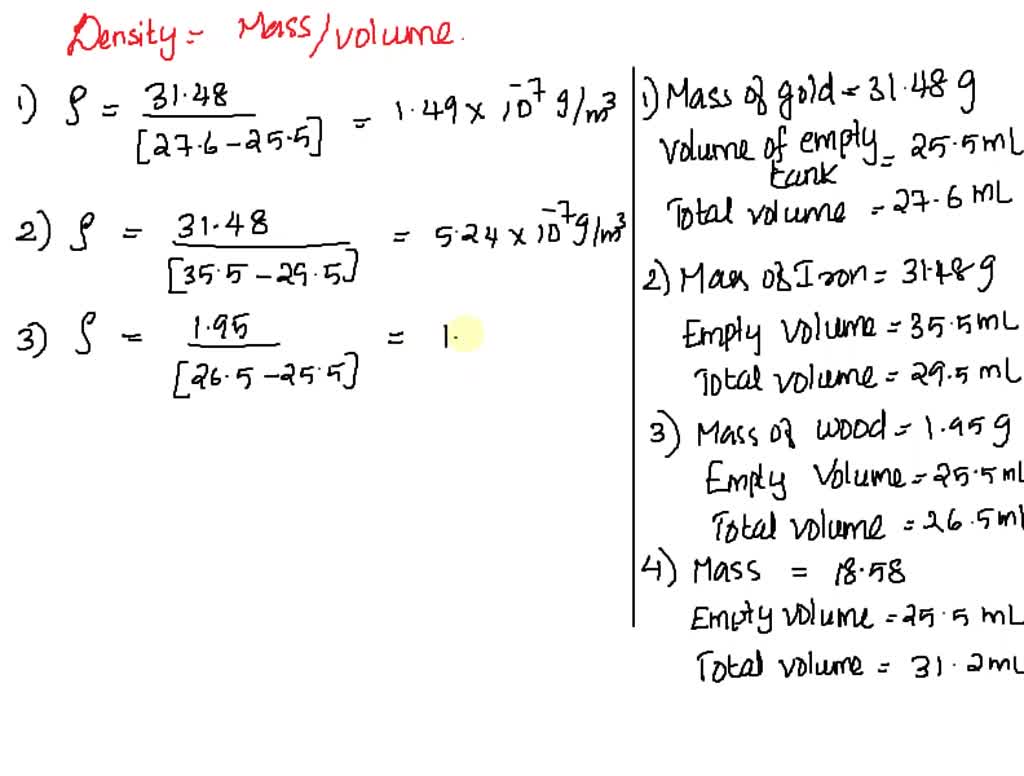 Density = Mass/volume.
1) ρ = 31.48 / [27.6 - 25.5] = 1.49 × 10⁻⁷ g/m³
2) ρ = 31.48 / [35.5 - 29.5] = 5.24 × 10⁻⁷ g/m³
3) ρ = 1.95 / [26.5 - 25.5] = 1.
1) Mass of gold = 31.48 g
Volume of empty tank = 25.5 mL
Total volume = 27.6 mL
2) Mass of Iron = 31.48 g
Empty volume = 35.5 mL
Total volume = 29.5 mL
3) Mass of wood = 1.95 g
Empty Volume = 25.5 mL
Total volume = 26.5 mL
4) Mass = 18.58
Empty volume = 25.5 mL
Total volume = 31.2 mL